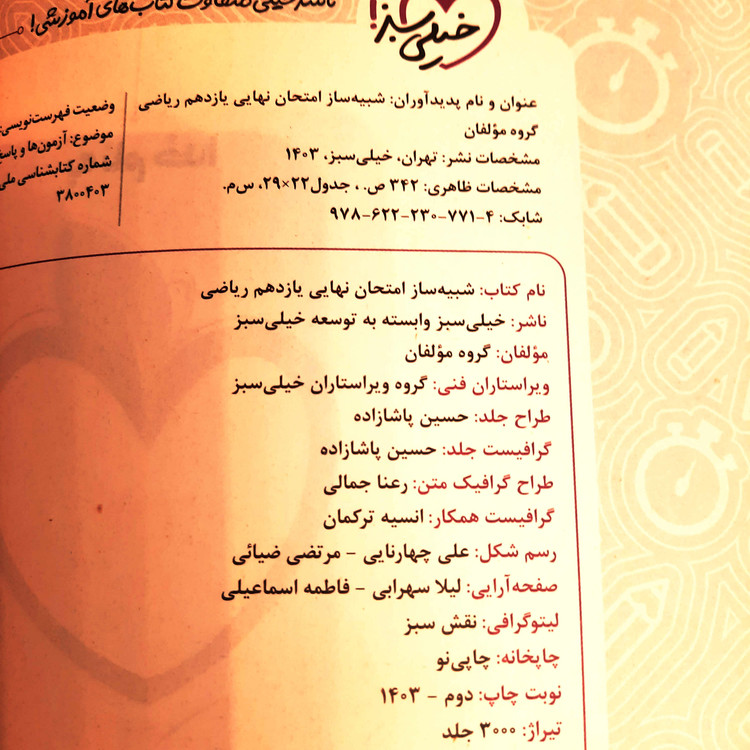 ناشر خیلی متفاوت کتاب‌های آموزشی!
خیلی سبز!
عنوان و نام پدیدآوران: شبیه‌ساز امتحان نهایی یازدهم ریاضی
گروه مؤلفان
مشخصات نشر: تهران، خیلی‌سبز، ۱۴۰۳
مشخصات ظاهری: ۳۴۲ ص. ، جدول۲۲×۲۹، س‌م.
شابک: ۴-۷۷۱-۲۳۰-۶۲۲-۹۷۸
وضعیت فهرست‌نویسی:
موضوع: آزمون‌ها و
شماره کتابشناسی ملی
۳۸۰۰۴۰۳
نام کتاب: شبیه‌ساز امتحان نهایی یازدهم ریاضی
ناشر: خیلی‌سبز وابسته به توسعه خیلی‌سبز
مؤلفان: گروه مؤلفان
ویراستاران فنی: گروه ویراستاران خیلی‌سبز
طراح جلد: حسین پاشازاده
گرافیست جلد: حسین پاشازاده
طراح گرافیک متن: رعنا جمالی
گرافیست همکار: انسیه ترکمان
رسم شکل: علی چهارنایی - مرتضی ضیائی
صفحه‌آرایی: لیلا سهرابی - فاطمه اسماعیلی
لیتوگرافی: نقش سبز
چاپخانه: چاپی‌نو
نوبت چاپ: دوم - ۱۴۰۳
تیراژ: ۳۰۰۰ جلد